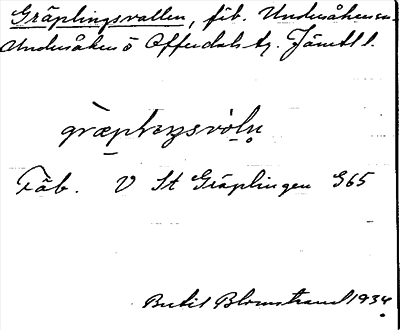 Gräplingsvallen, fäb. Undersåkers sn.
Undersåkers o Offerdals tg. Jämtl l.
græplıŋsvòlṇ
Fäb. V St Gräplingen G65
Bertil Blomstrand 1934